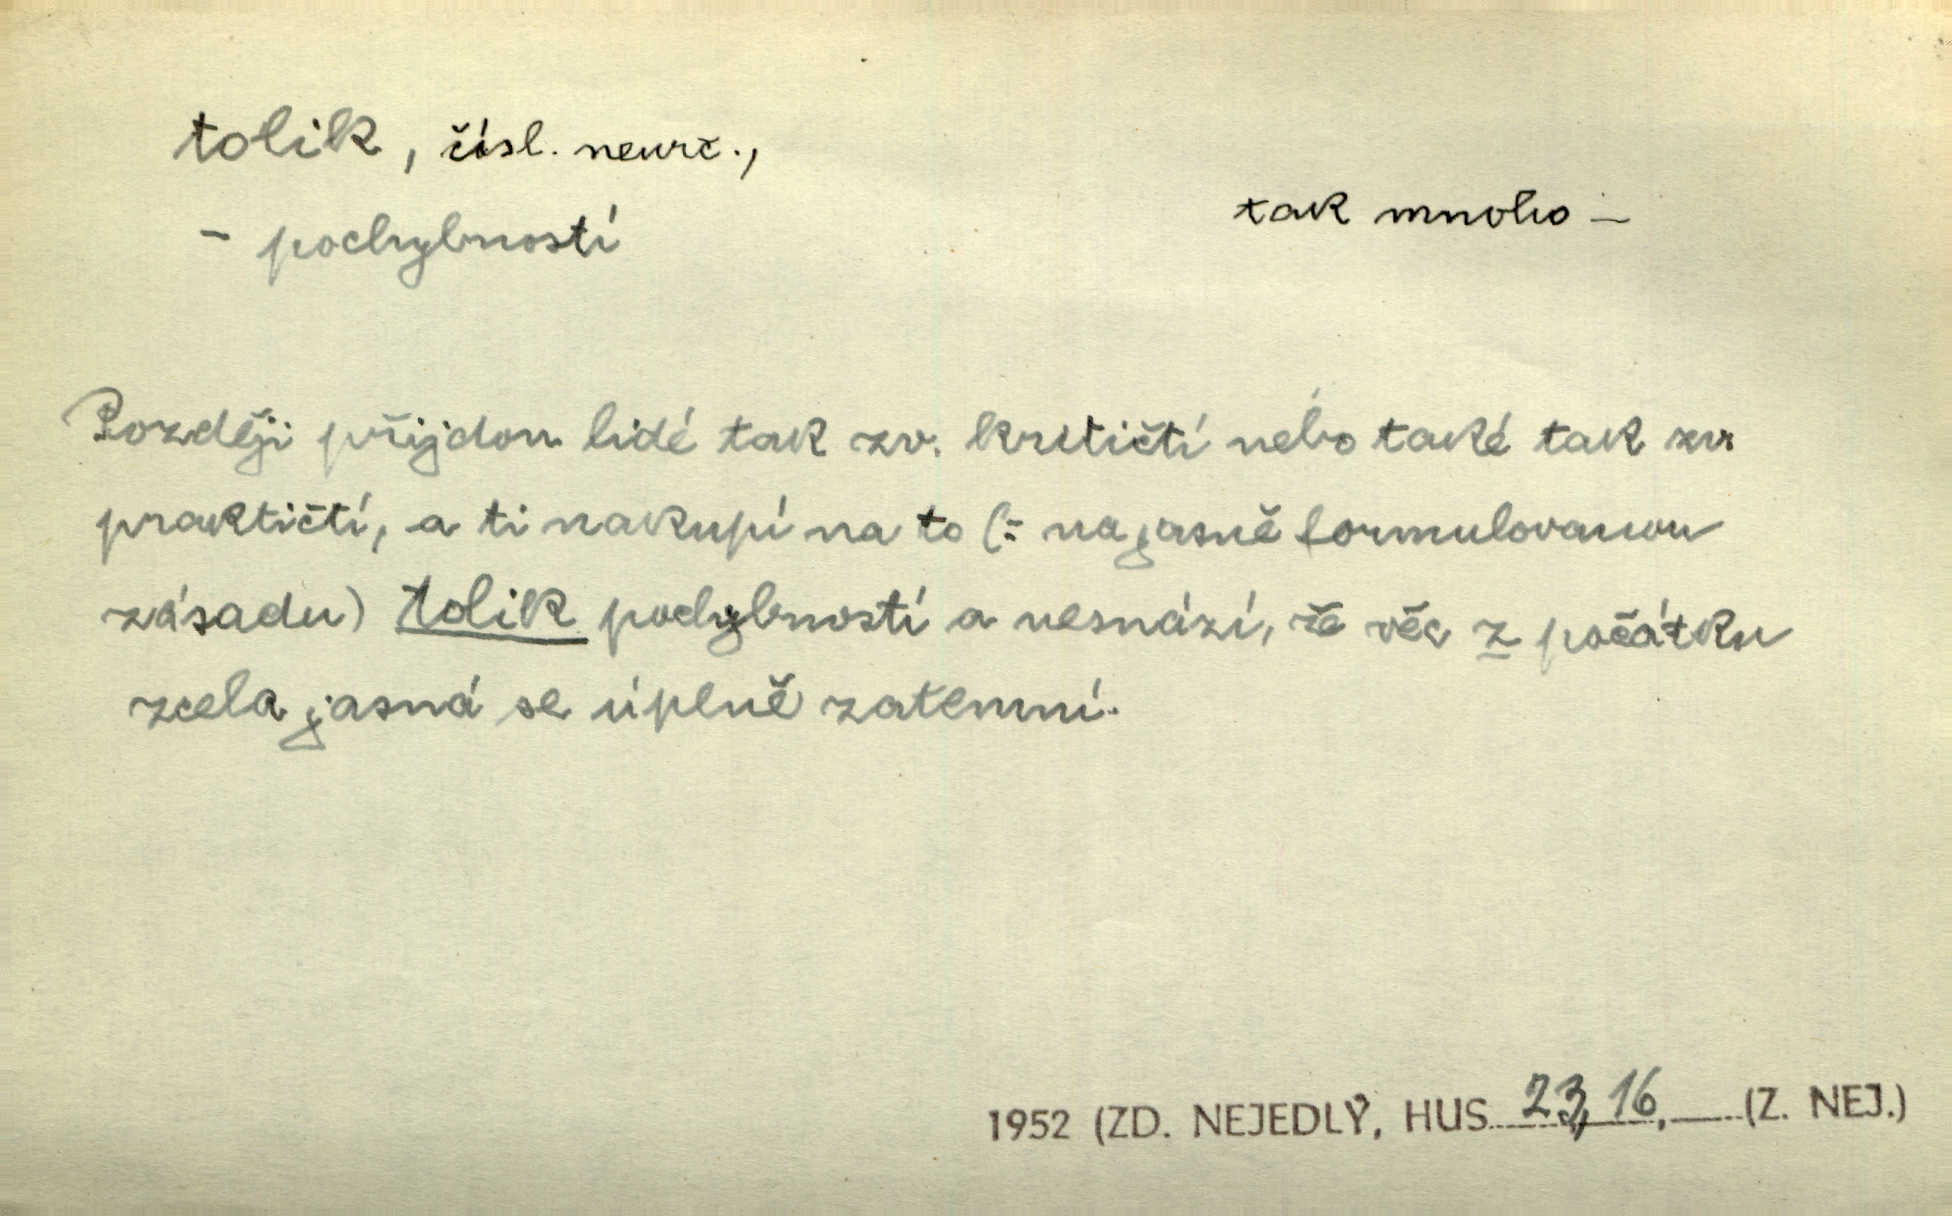 tolik, čísl. neurč.,
tak mnoho –
– pochybností
Později přijdou lidé tak zv. kritičtí nebo také tak zv.
praktičtí, a ti nakupí na to (= na jasně formulovanou
zásadu) tolik pochybností a nesnází, že věc z počátku
zcela jasná se úplně zatemní.
1952 (ZD. NEJEDLÝ, HUS 23, 16, (Z. NEJ.)